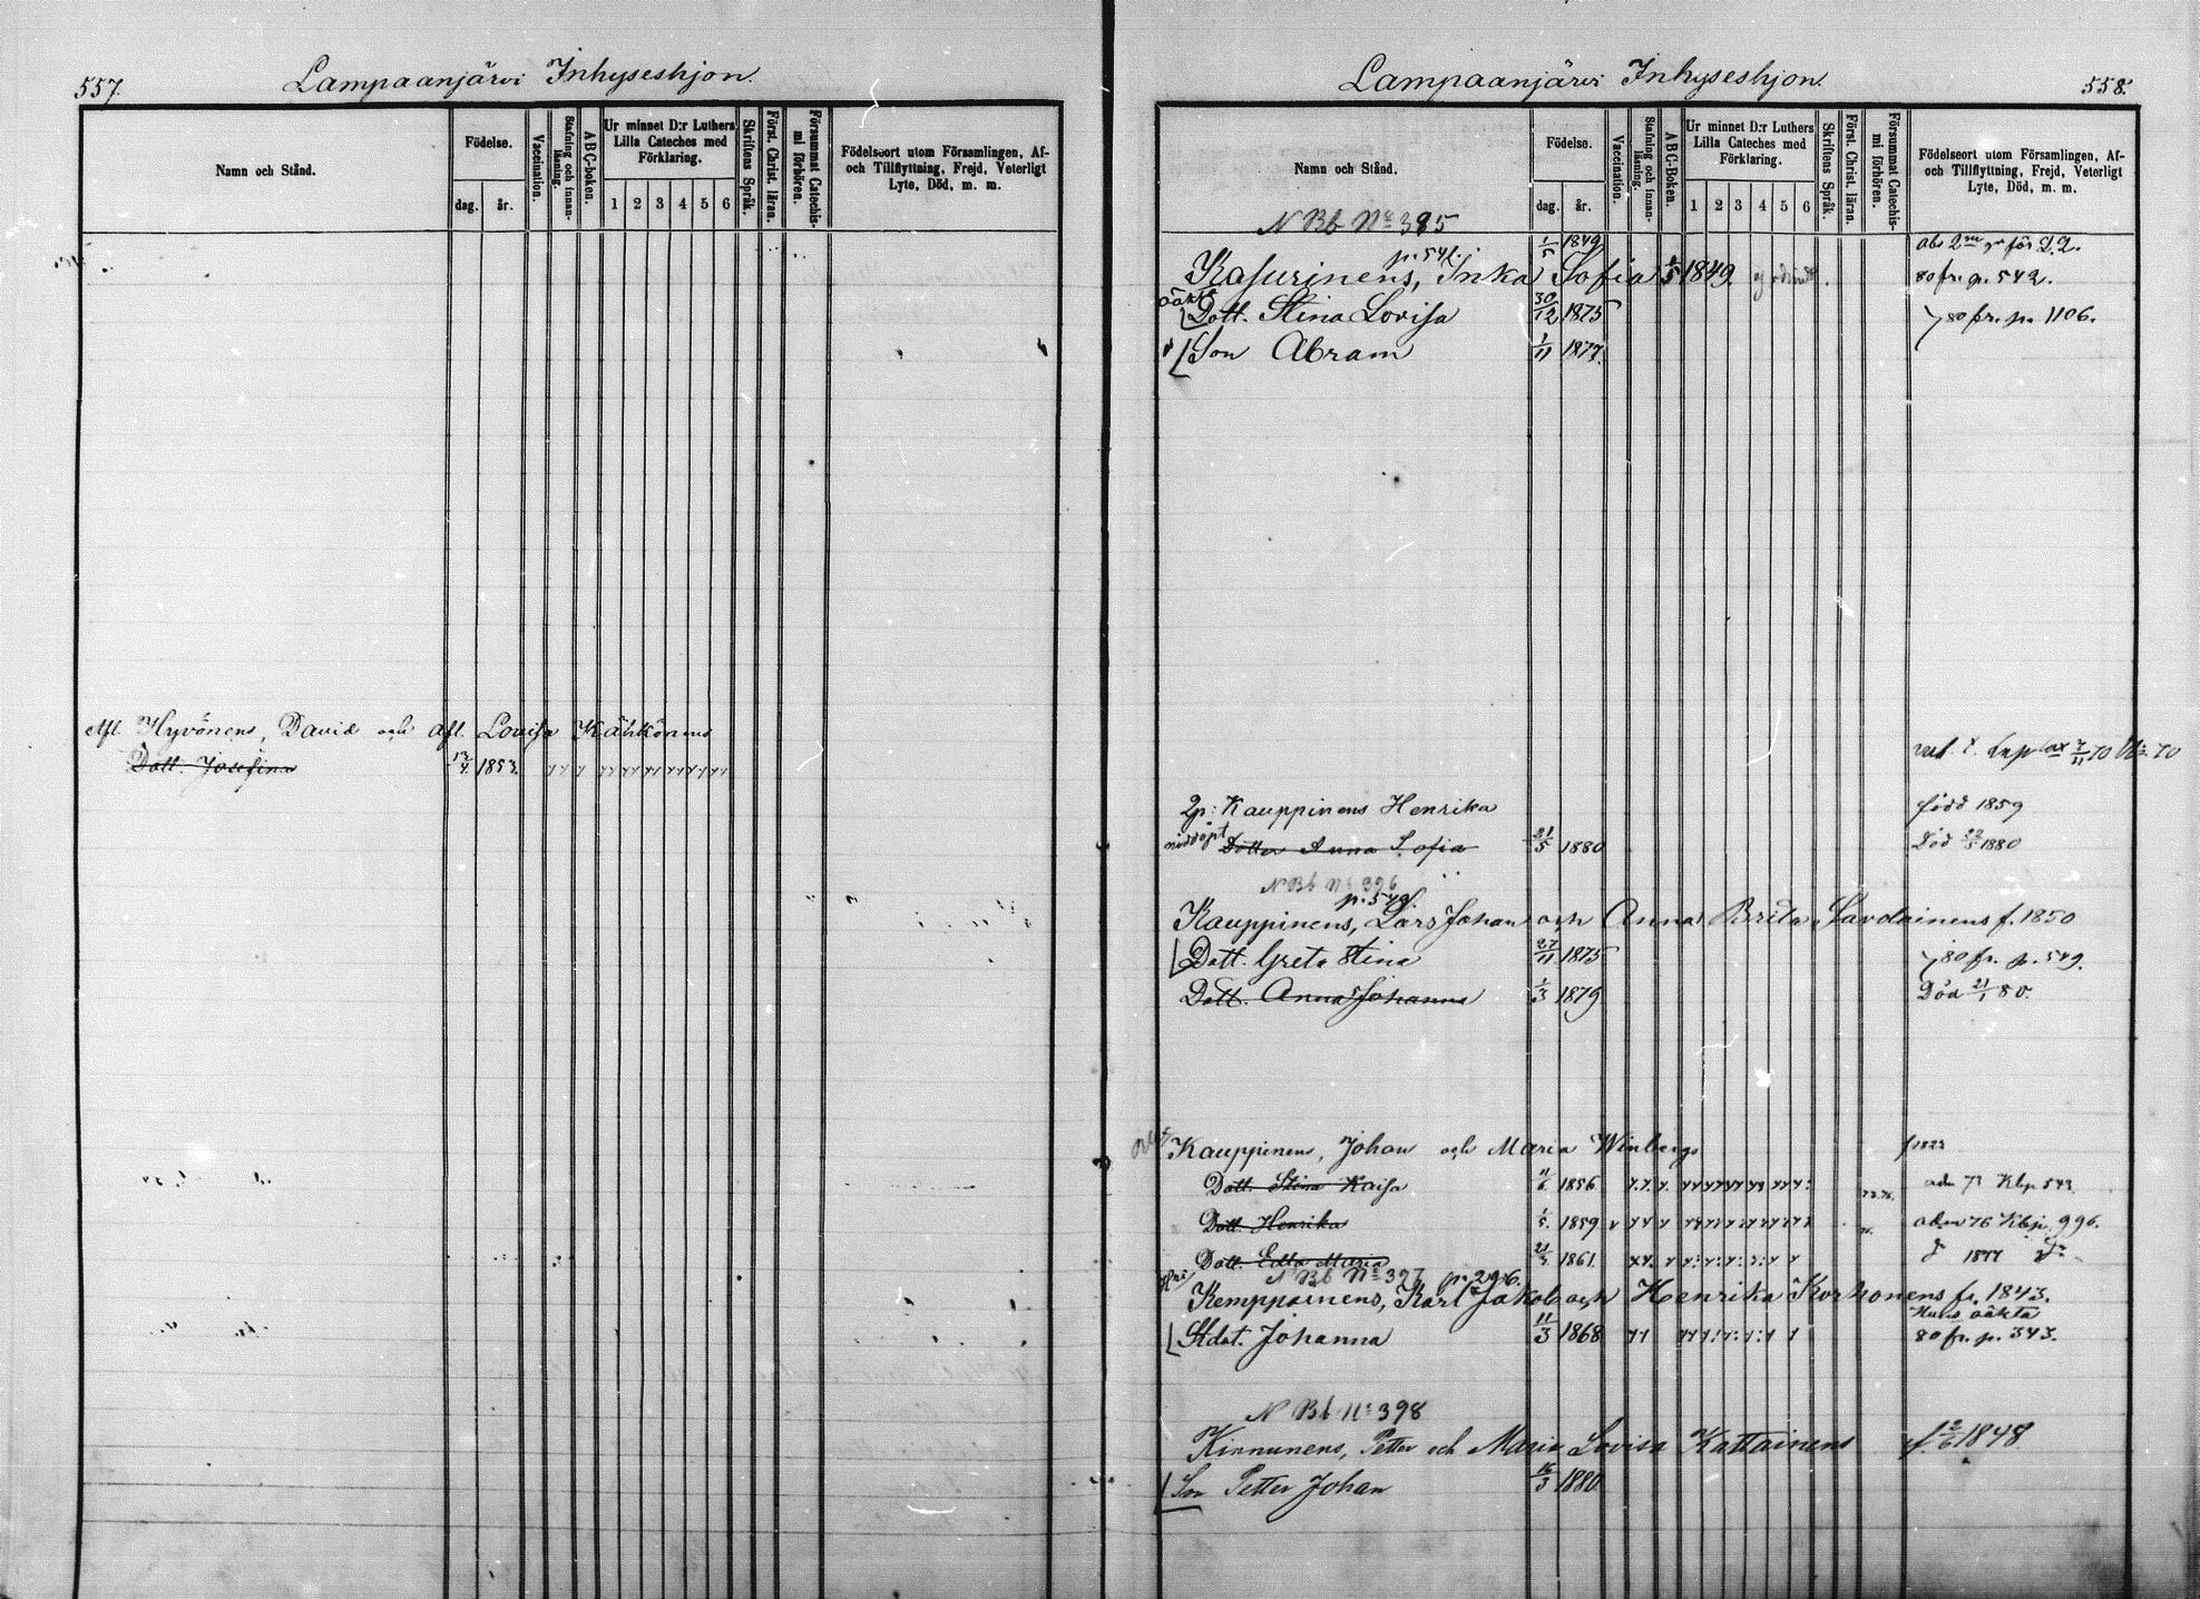 557.
Lampaanjärvi Inhyseshjon.
Namn och Stånd.
Födelse.
dag.
år.
Vaccination.
Stafning och innanläsning.
ABC-boken.
Ur minnet D:r Luthers Lilla Cateches med Förklaring.
1 2 3 4 5 6
Skriftens Språk.
Först. Christ. läran.
Försummat Catechismi förhören.
Födelseort utom Församlingen, Af- och Tillflyttning, Frejd, Veterligt Lyte, Död, m. m.
Afl. Hyvönens, David och afl. Lovisa Kähkönens
Dott. Josefina 1853.
Lampaanjärvi Inhyseshjon.
558.
Namn och Stånd.
Födelse.
dag.
år.
Vaccination.
Stafning och innanläsning.
ABC-Boken.
Ur minnet D:r Luthers Lilla Cateches med Förklaring.
1 2 3 4 5 6
Skriftens Språk.
Först. Christ. läran.
Försummat Catechismi förhören.
Födelseort utom Församlingen, Af- och Tillflyttning, Frejd, Veterligt Lyte, Död, m. m.
N Bb No 395
1/5 1849
Kasurinens, Inka Sofia 1/5 1849. 80 fr. p. 542.
oäkta
Dott. Stina Lovisa 30/12 1875 80 fr. p. 1106.
Son Abram 1/11 1877.
2p: Kauppinens Henrika född 1859
nöddöpt Dotter Anna Sofia 21/5 1880 Död 22/5 1880
N Bb No 396
p. 549.
Kauppinens, Lars Johan och Anna Brita Savolainens f. 1850
Dott. Greta Stina 27/11 1875 80 fr. p. 549.
Dott. Anna Johanna 1/3 1879 Död 21/1 80.
Kauppinens, Johan och Maria Winbergs
Dott. Stina Kaisa 1856 adm 73 Kbp 543
Dott. Henrika 1/5. 1859 adm 76 Kbp. 996.
Dott. Edla Maria 1861.
N Bb No 397 p. 296.
Kemppainens, Karl Jakob och Henrika Korhonens fr. 1843.
Hust. oäkta
Stdot. Johanna 11/3 1868 80 fr. p. 343.
N Bb No 398
Kinnunens, Petter och Maria Lovisa Kattainens f. 2/6 1848
Son Petter Johan 16/3 1880.